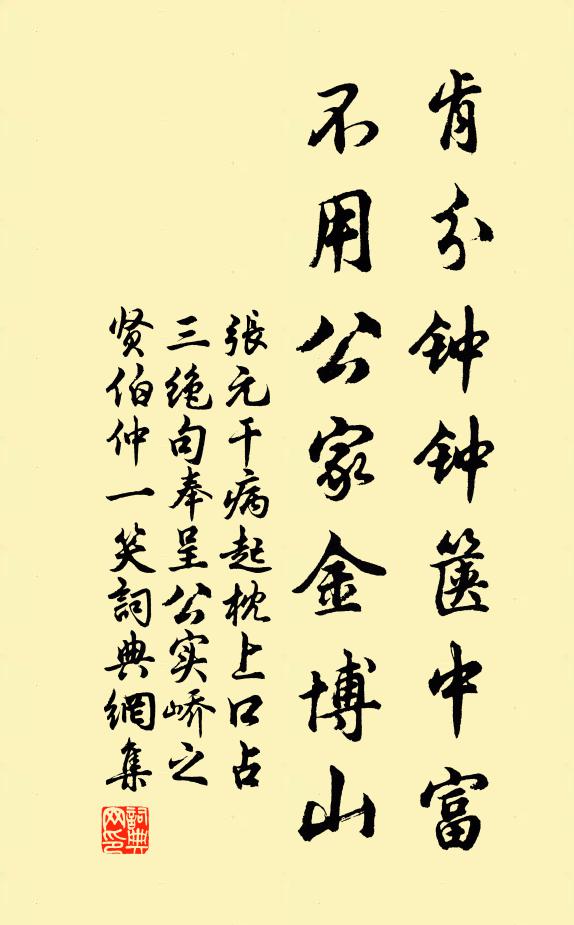 肯分钟钟箧中富
不用公家金博山
張元干病起枕上口占
三绝句奉呈公实峤之
贤伯仲一笑詞典網集
詞典网印